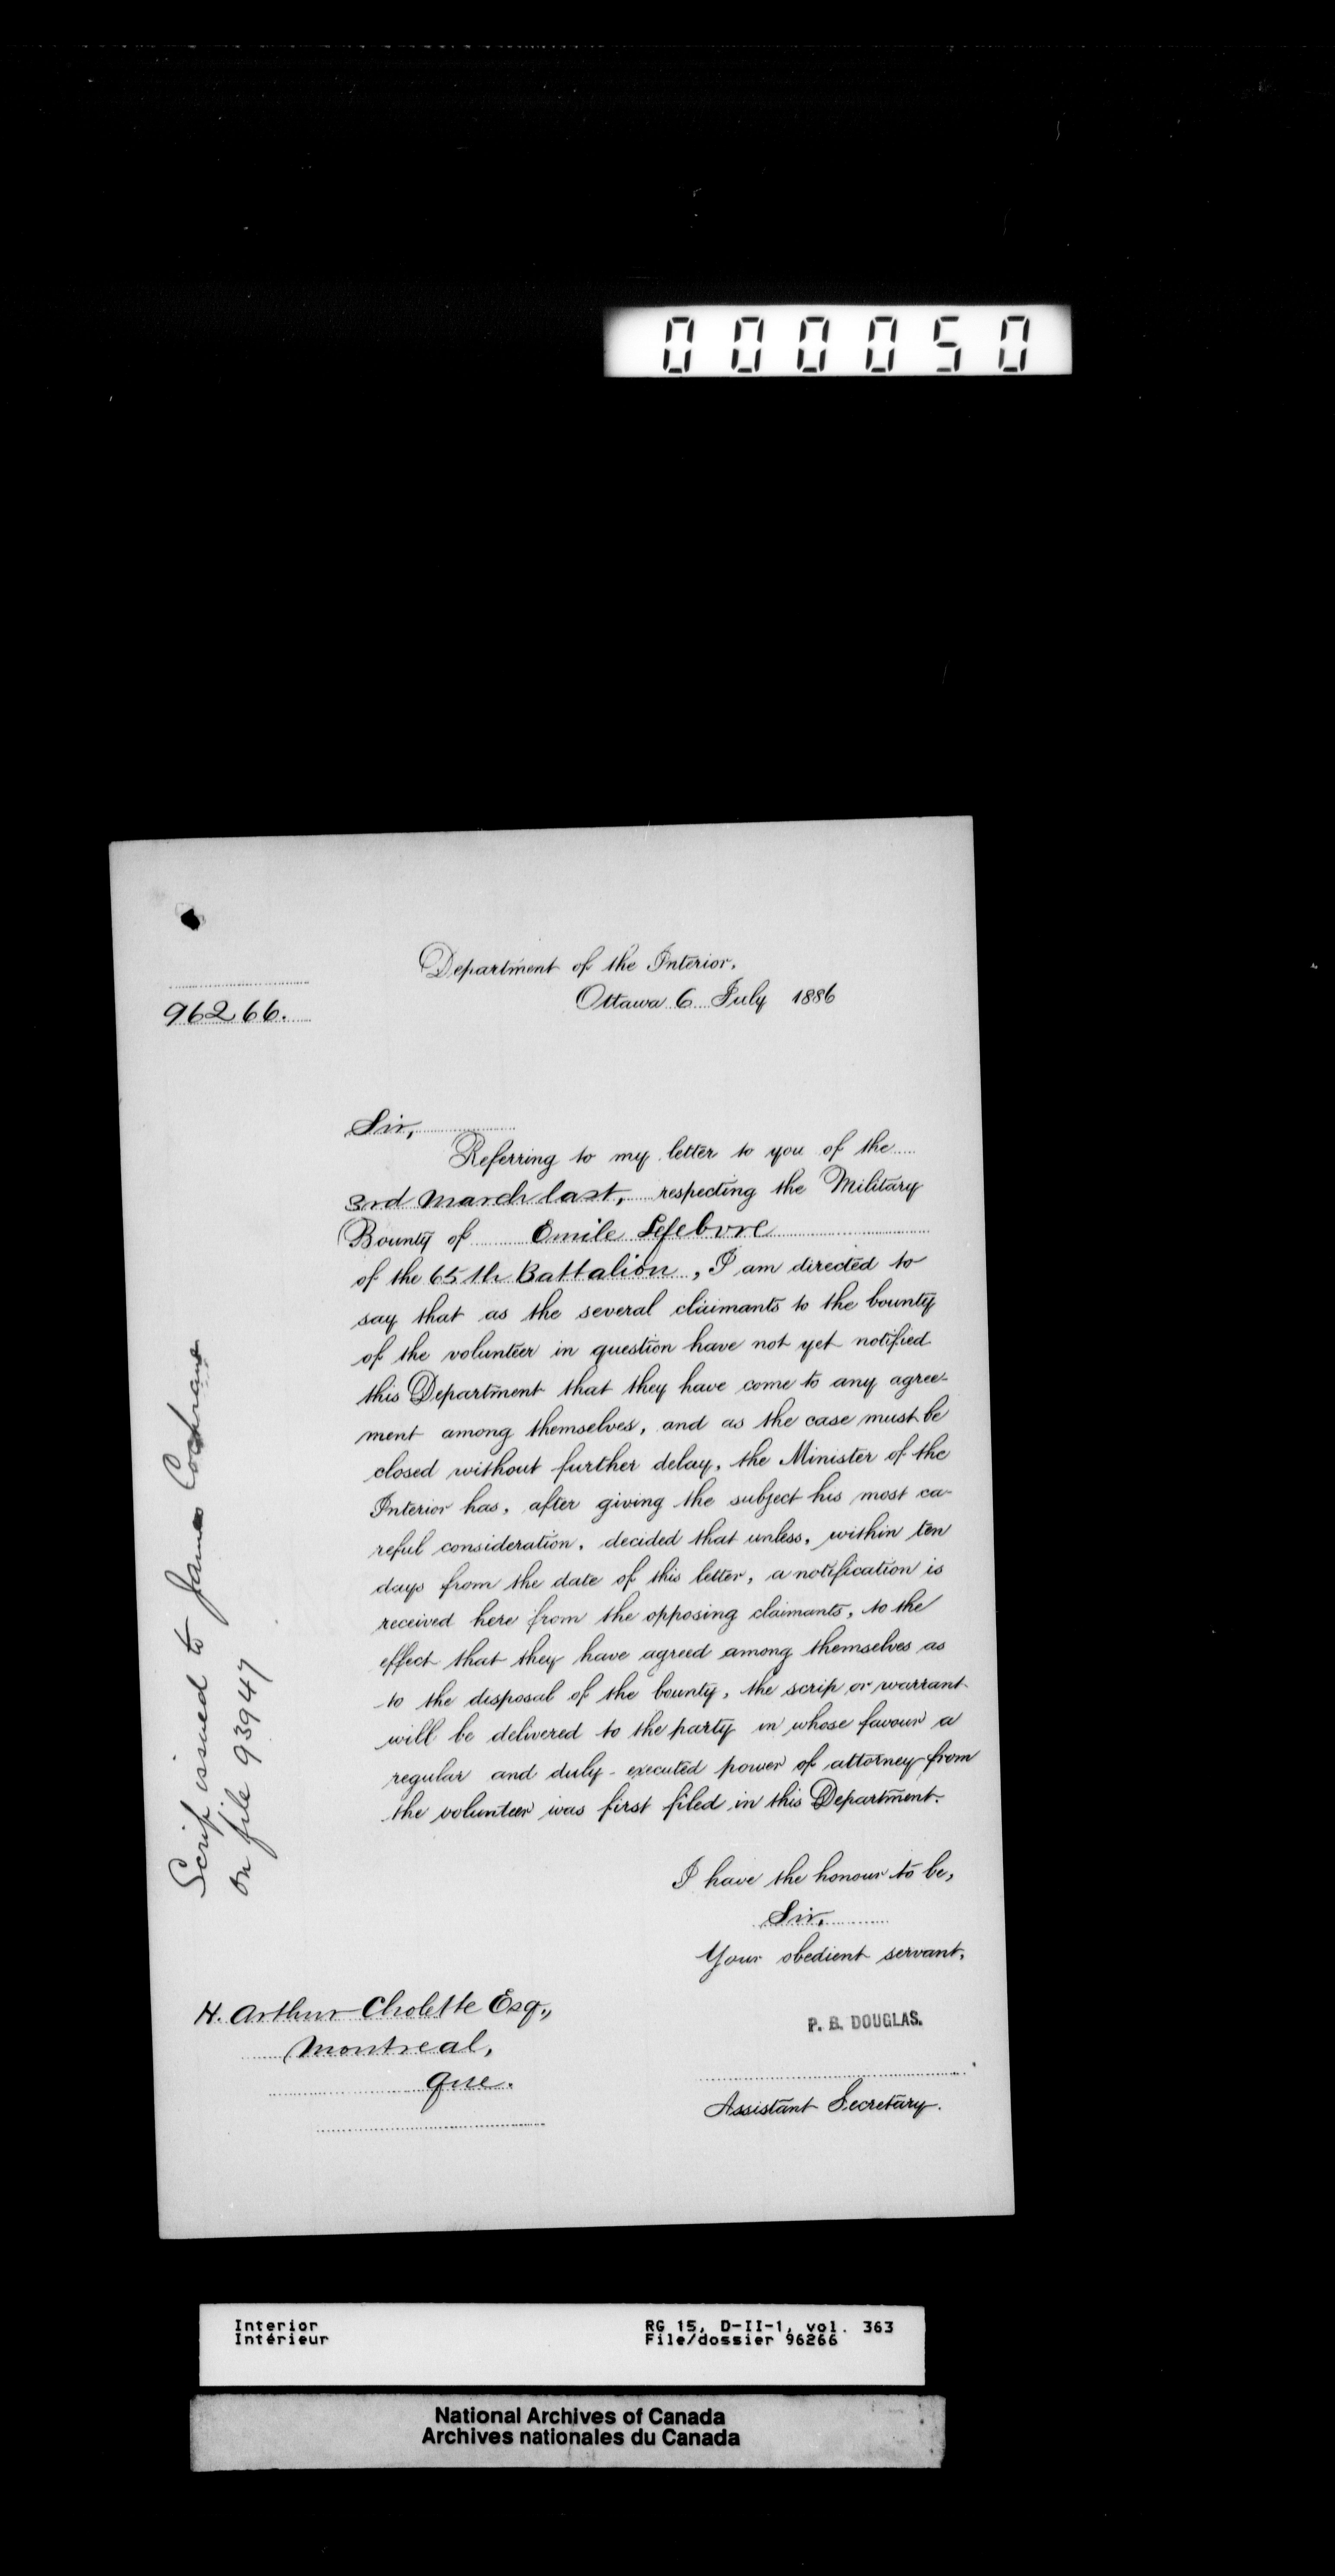 000050
Department of the Interior,
Ottawa 6 July 1886
96266.
Sir,
Referring to my letter to you of the
3rd March last, respecting the Military
Bounty of Emile Lefebvre
of the 65th Battalion, I am directed to
say that as the several claimants to the bounty
of the volunteer in question have not yet notified
this Department that they have come to any agree-
ment among themselves, and as the case must be
closed without further delay, the Minister of the
Interior has, after giving the subject his most ca-
reful consideration, decided that unless, within ten
days from the date of this letter, a notification is
received here from the opposing claimants, to the
effect that they have agreed among themselves as
to the disposal of the bounty, the scrip or warrant
will be delivered to the party in whose favour a
regular and duly-executed power of attorney from
the volunteer was first filed in this Department.
I have the honour to be,
Sir,
Your obedient servant,
P. B. DOUGLAS.
Assistant Secretary.
H. Arthur Cholette Esq.,
Montreal,
Que.
Scrip issued to James Cochrane
on file 93947
Interior
Intérieur
RG 15, D-II-1, vol. 363
File/dossier 96266
National Archives of Canada
Archives nationales du Canada